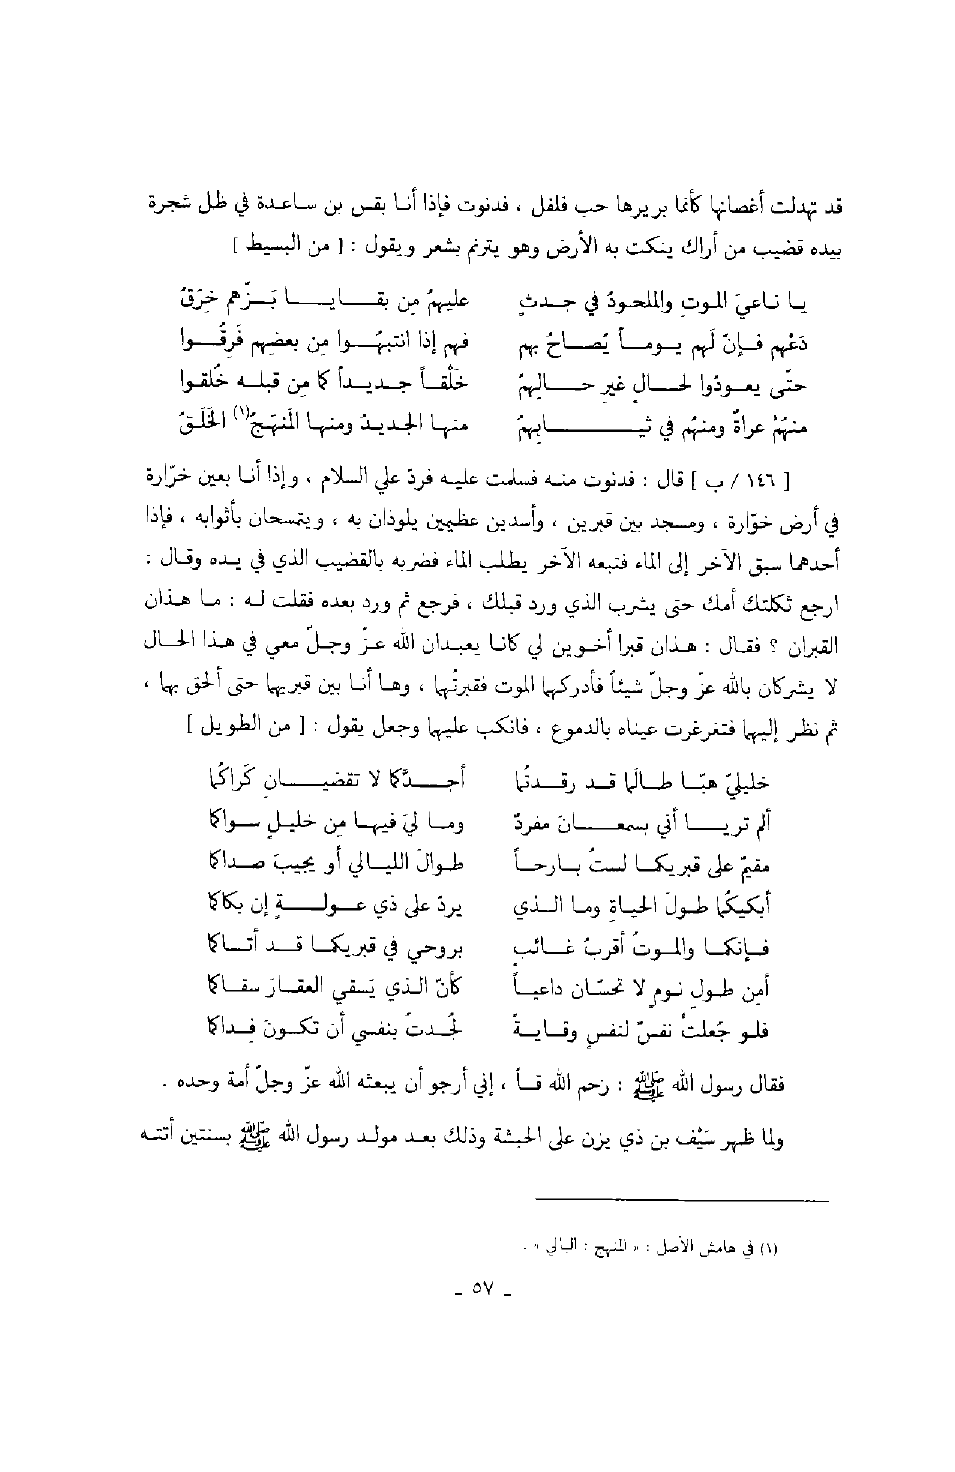 قد تهدلت أغصانها كأنما بريرها حب فلفل ، فدنوت فإذا أنا بقس بن ساعدة في ظل شجرة
بيده قضيب من أراك ينكت به الأرض وهو يترنم بشعر ويقول : [ من البسيط ]
يا ناعيَ الموتِ والملحودُ في جدثٍ عليهمُ من بقايا بَزّهم خِرَقُ
دَعْهم فإنّ لهم يوماً يُصاحُ بهم فهم إذا انتبهُوا من بعضهم فَرِقُوا
حتّى يعودوا لحالٍ غير حالِهمُ خَلْقاً جديداً كما من قبله خُلقوا
منهُمْ عراةٌ ومنهُم في ثيابِهمُ منها الجديدُ ومنها المُنهَجُ(١) الخَلَقُ
[ ١٤٦ / ب ] قال : فدنوت منه فسلمت عليه فردّ علي السلام ، وإذا أنا بعين خرّارة
في أرض خوّارة ، ومسجد بين قبرين ، وأسدين عظيمين يلوذان به ، ويتمسحان بأثوابه ، فإذا
أحدهما سبق الآخر إلى الماء فتبعه الآخر يطلب الماء فضربه بالقضيب الذي في يده وقال :
ارجع ثكلتك أمك حتى يشرب الذي ورد قبلك ، فرجع ثم ورد بعده فقلت له : ما هذان
القبران ؟ فقال : هذان قبرا أخوين لي كانا يعبدان الله عزّ وجلّ معي في هذا الحال
لا يشركان بالله عزّ وجلّ شيئاً فأدركهما الموت فقبرتُهما ، وها أنا بين قبريهما حتى ألحق بهما ،
ثم نظر إليهما فتغرغرت عيناه بالدموع ، فانكب عليهما وجعل يقول : [ من الطويل ]
خليليّ هبّا طالما قد رقدتُما أجدّكما لا تقضيان كَراكُما
ألم تريا أني بسمعان مفردٌ وما ليَ فيها من خليلٍ سواكما
مقيمٌ على قبريكما لستُ بارحاً طوالَ الليالي أو يجيبَ صداكما
أبكيكُما طولَ الحياةِ وما الذي يردّ على ذي عولةٍ إن بكاكما
فإنكما والموتُ أقربُ غائبٍ بروحي في قبريكما قد أتاكما
أمن طول نومٍ لا تجيبان داعياً كأنّ الذي يَسقي العقارَ سقاكما
فلو جُعلتْ نفسٌ لنفسٍ وقايةً لجُدتُ بنفسي أن تكونَ فداكما
فقال رسول الله ﷺ : رحم الله قساً ، إني أرجو أن يبعثه الله عزّ وجلّ أمة وحده .
ولما ظهر سَيْف بن ذي يزن على الحبشة وذلك بعد مولد رسول الله ﷺ بسنتين أتته
(١) في هامش الأصل : « المنهج : البالي » .
ـ ٥٧ ـ